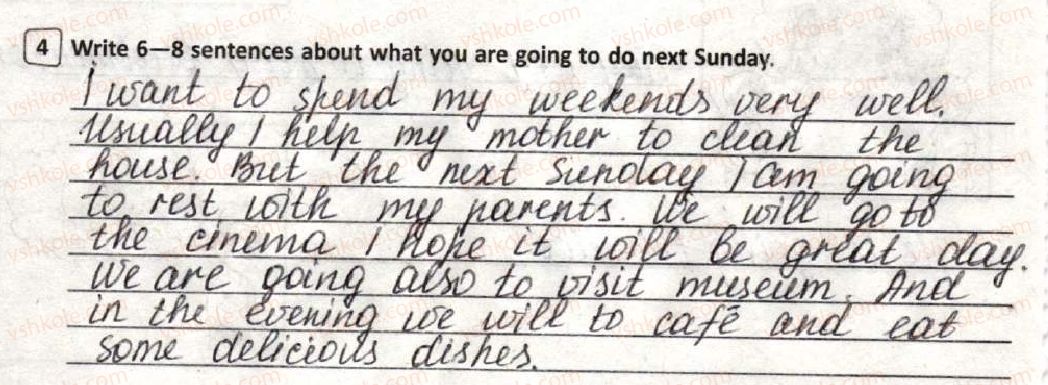 4 Write 6—8 sentences about what you are going to do next Sunday.
I want to spend my weekends very well.
Usually I help my mother to clean the
house. But the next Sunday I am going
to rest with my parents. We will go to
the cinema I hope it will be great day.
We are going also to visit museum. And
in the evening we will to café and eat
some delicious dishes.